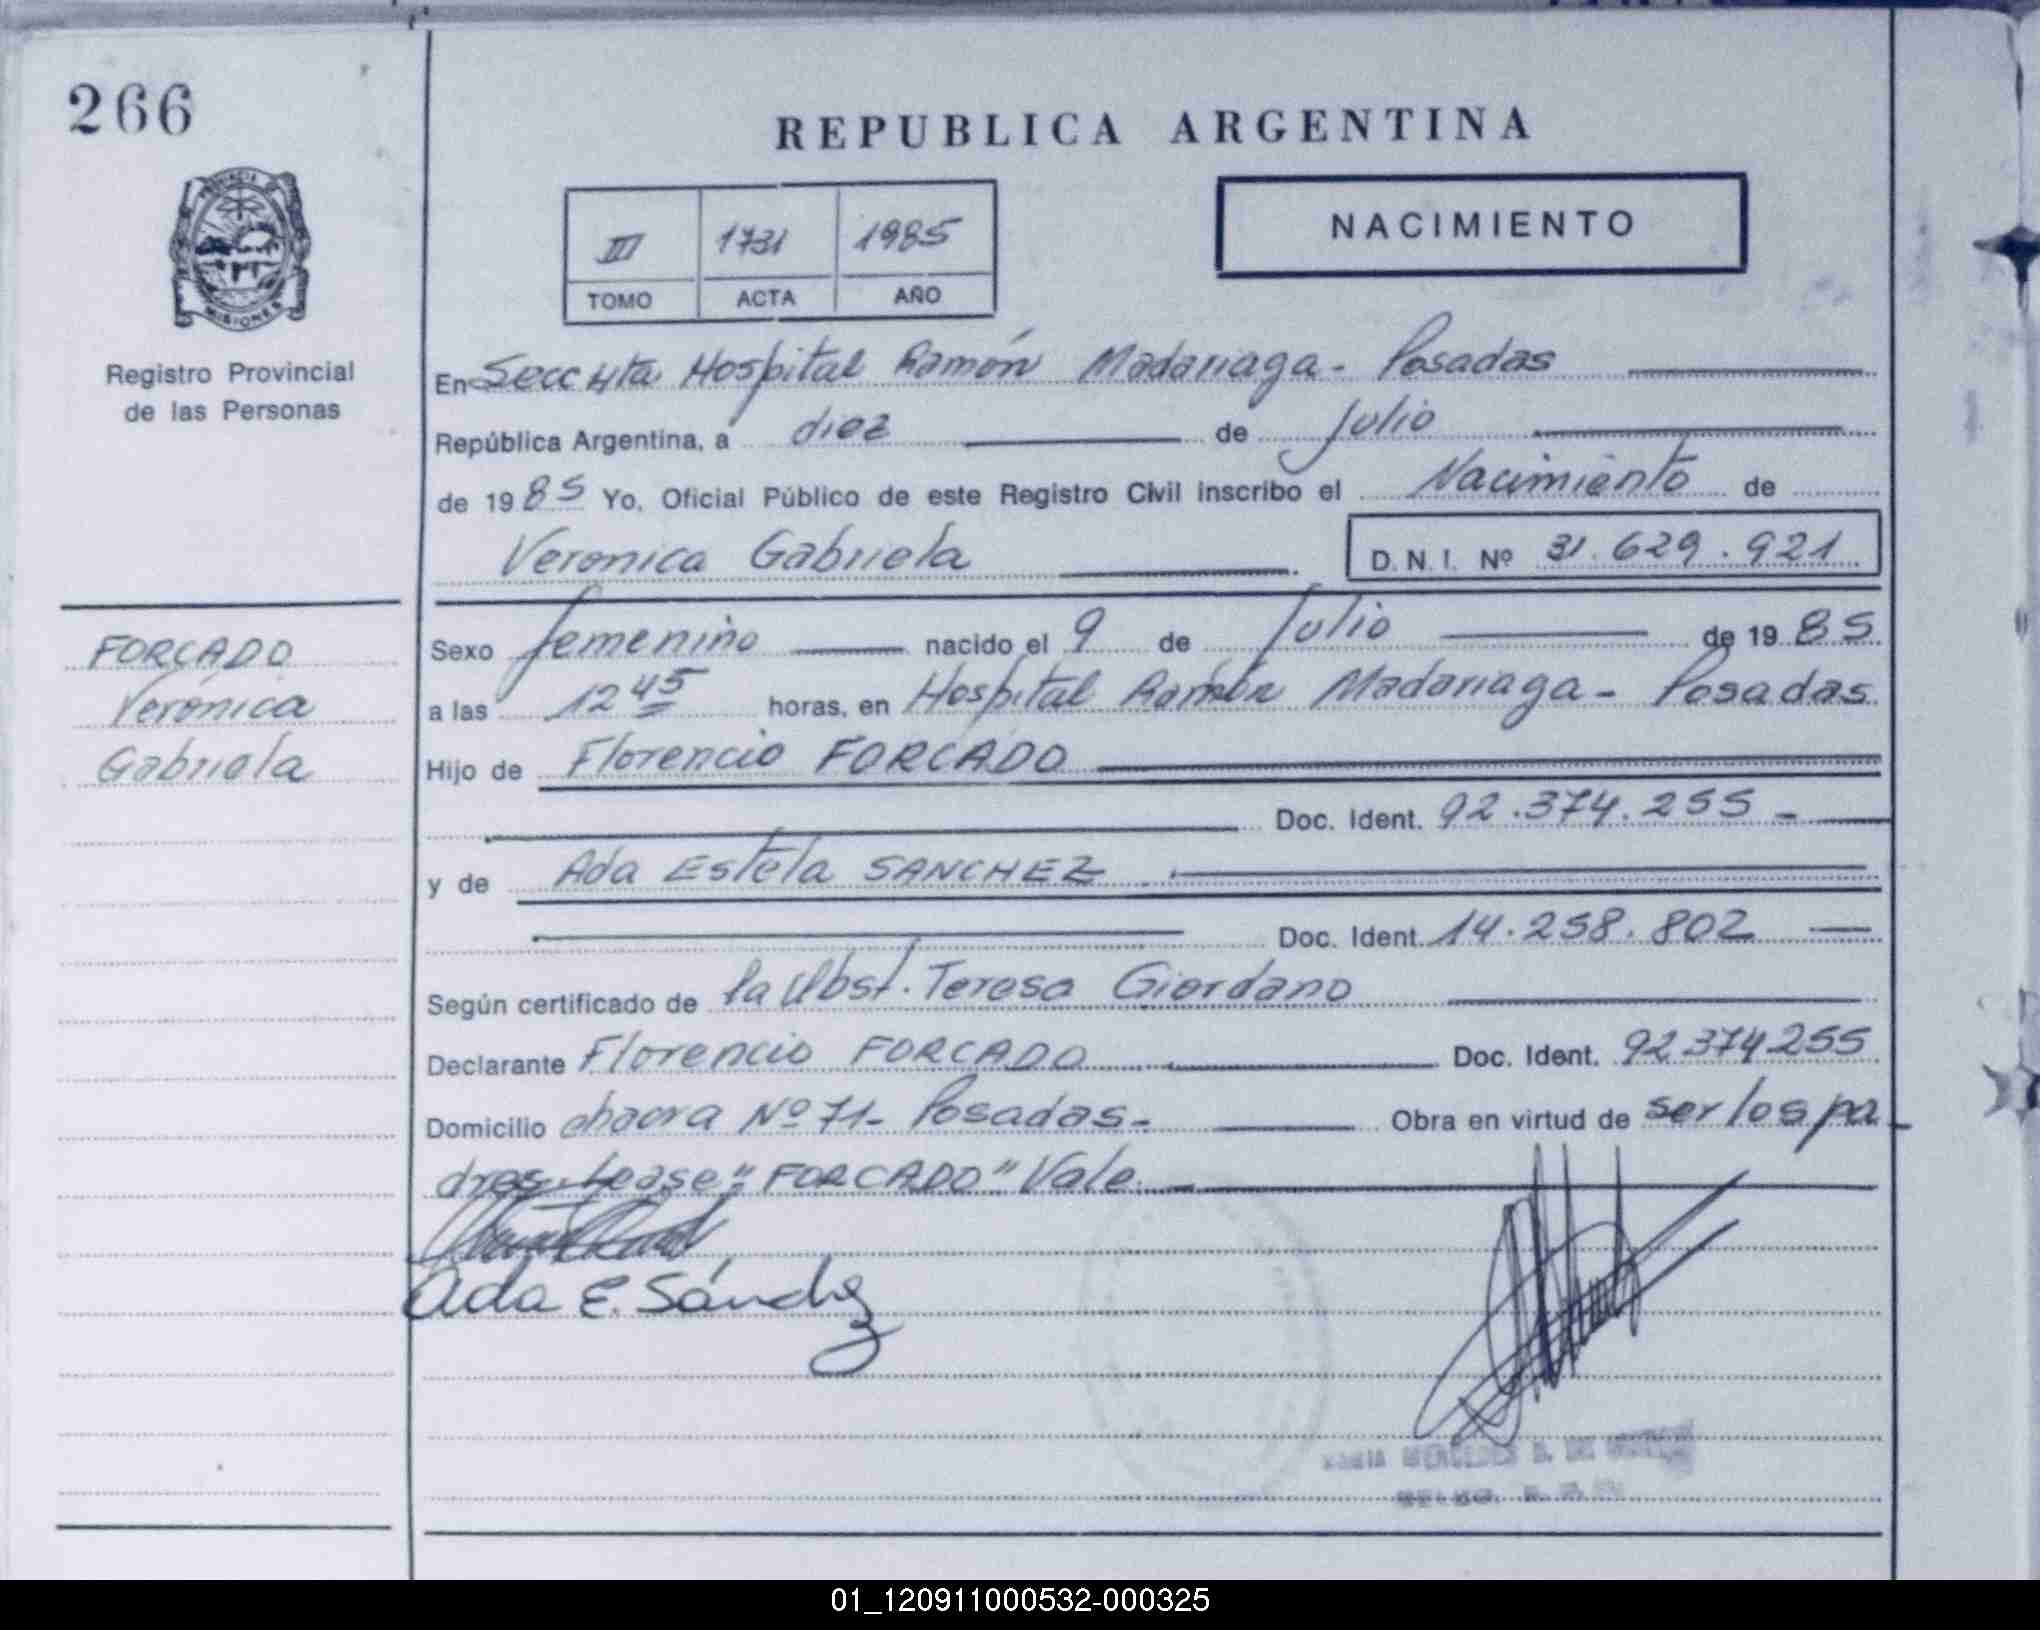 266
REPUBLICA ARGENTINA
NACIMIENTO
III 1731 1985
TOMO ACTA AÑO
PROVINCIA DE
MISIONES
Registro Provincial
de las Personas
En Secc 4ta Hospital Ramón Madariaga - Posadas
República Argentina, a diez de Julio
de 1985 Yo, Oficial Público de este Registro Civil inscribo el Nacimiento de
Veronica Gabriela D. N. I. Nº 31.629.921
FORCADO
Verónica
Gabriela
Sexo femenino nacido el 9 de Julio de 1985
a las 12 45 horas, en Hospital Ramón Madariaga - Posadas
Hijo de Florencio FORCADO
Doc. Ident. 92.374.255 -
y de Ada Estela SANCHEZ
Doc. Ident. 14.258.802
Según certificado de la Obst. Teresa Giordano
Declarante Florencio FORCADO Doc. Ident. 92374255
Domicilio chacra Nº 71 - Posadas - Obra en virtud de ser los pa
dres. Lease "FORCADO" Vale
Ada E. Sánchez
MARIA MERCEDES B. DE
01_120911000532-000325